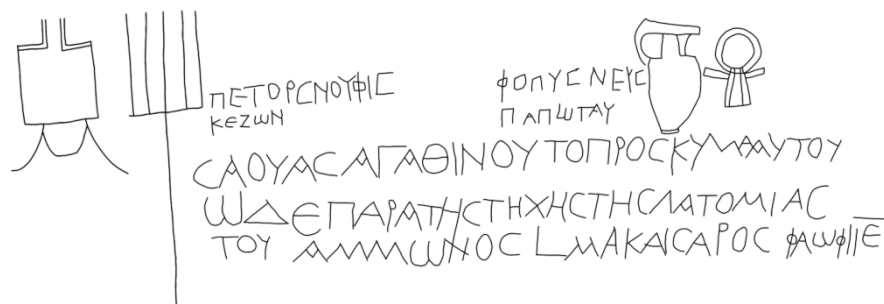 ΠΕΤΟΡCΝΟΥΦΙC
ΚΕΖΩΝ
ΦΟΠΥCΝΕΥC
ΠΑΠΩΤΑΥ
CΑΟΥΑCΑΓΑΘΙΝΟΥΤΟΠΡΟCΚΥΜΑΑΥΤΟΥ
ΩΔΕΠΑΡΑΤΗCΤΗΧΗCΤΗCΛΑΤΟΜΙΑC
ΤΟΥ ΑΜΜΩΝΟC LΜΑΚΑΙCΑΡΟC ΦΑΩΦΙΙΕ